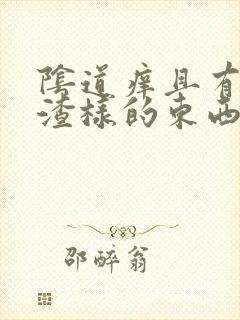 陰道癢且有
渣樣的東西
邵醉翁